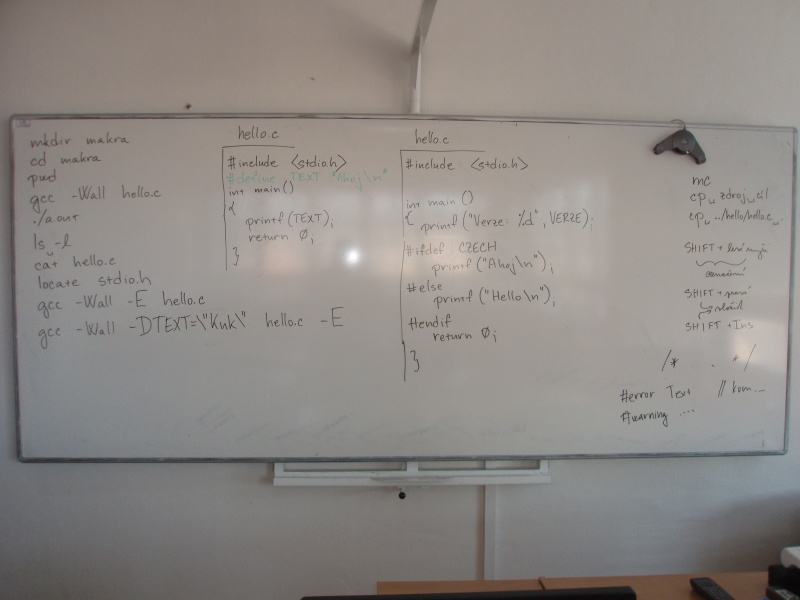 mkdir makra
cd makra
pwd
gcc -Wall hello.c
./a.out
ls␣-l
cat hello.c
locate stdio.h
gcc -Wall -E hello.c
gcc -Wall -DTEXT=\"Kuk\" hello.c -E
hello.c
#include <stdio.h>
#define TEXT "Ahoj\n"
int main()
{
printf(TEXT);
return 0;
}
hello.c
#include <stdio.h>
int main()
{ printf("Verze: %d", VERZE);
#ifdef CZECH
printf("Ahoj\n");
#else
printf("Hello\n");
#endif
return 0;
}
mc
cp␣zdroj␣cíl
cp␣../hello/hello.c␣.
SHIFT + levá myš
označení
SHIFT + pravá
vložit
SHIFT + Ins
/* . */
#error Text // kom...
#warning ....